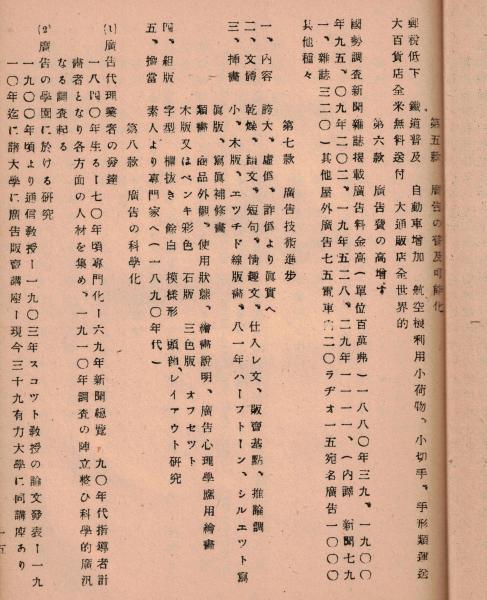 第五款　廣告の普及可能化
郵税低下　鐵道普及　自動車增加　航空機利用小荷物、小切手、手形類運送
大百貨店全米無料送付　大通販店全世界的
第六款　廣告費の高增す
國勢調査新聞雜誌揭載廣告料金高(單位百萬弗)一八八〇年三九、一九〇〇
年九五、〇九年二〇二、一九年五二八、二九年一一一一、(內譯　新聞七九
一、雜誌三二〇)其他屋外廣告七五電車二〇ラヂオ一五宛名廣告一〇〇〇
其他種々
第七款　廣告技術進步
一、內容　誇大、虛僞、詐僞より眞實へ
二、文飾　乾燥、韻文、短句、情趣文、仕入レ文、販賣基點、推論調
三、插畫　小、木版、エツチド線版畫、八一年ハーフトーン、シルエツト寫
眞版、寫眞補修畫
類畫、商品外觀、使用狀態、繪畫說明、廣告心理學應用繪畫
木版又はペンキ彩色　石版　三色版　オフセツト
四、組版　字型　欄抜き　餘白　模樣形　頭飾、レイアウト研究
五、擔當　素人より專門家へ(一八九〇年代)
第八款　廣告の科學化
(1) 廣告代理業者の發達
一八四〇年生る—七〇年頃專門化—六九年新聞總覽　九〇年代指導者計
畵者となり各方面の人材を集め、一九一〇年調査の陣立整ひ科學的廣汎
なる調査起る
(2) 廣告の學園に於ける硏究
一九〇〇年頃より通信敎授—一九〇三年スコツト敎授の論文發表—一九
一〇年迄に諸大學に廣告販賣講座—現今三十九有力大學に同講座あり
一五